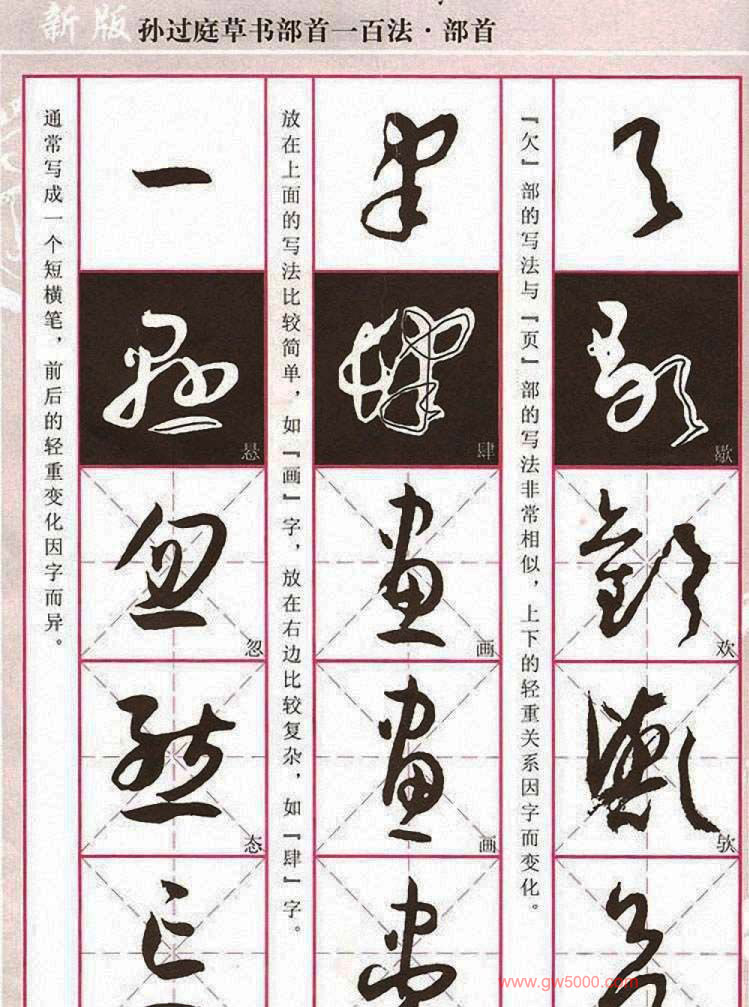 新版 孙过庭草书部首一百法·部首
『欠』部的写法与『页』部的写法非常相似，上下的轻重关系因字而变化。
歇
欢
欤
放在上面的写法比较简单，如『画』字，放在右边比较复杂，如『肆』字。
肆
画
画
通常写成一个短横笔，前后的轻重变化因字而异。
悬
忽
态
www.gw5000.com